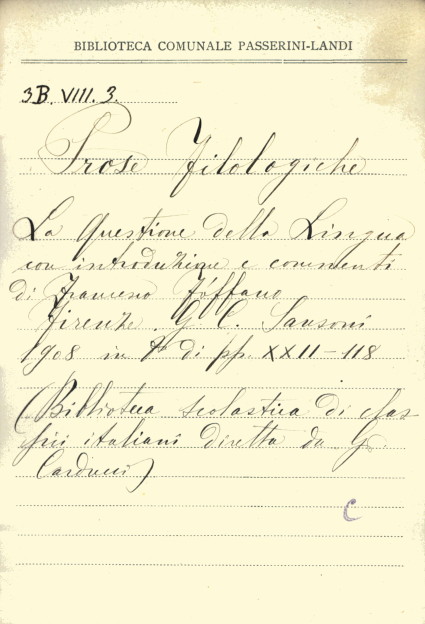 BIBLIOTECA COMUNALE PASSERINI-LANDI
3B. VIII. 3.
Prose filologiche
La Questione della Lingua
con introduzione e commenti
di Francesco Foffano
Firenze G. C. Sansoni
1908 in 8º di pp. XXII-118
(Biblioteca scolastica di clas-
sici italiani diretta da G.
Carducci)
C